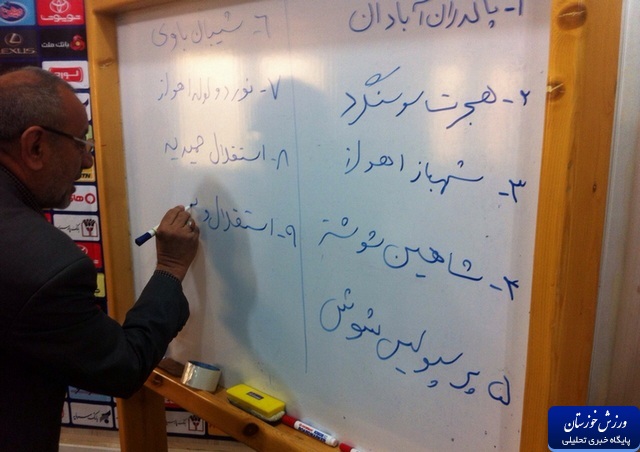 ۱- پالدران آبادان
۲- هجرت سوسنگرد
۳- شهباز اهواز
۴- شاهین شوشتر
۵ پرسپولیس شوش
۶- شیبال باوی
۷- نورد و لوله اهواز
۸- استقلال حمیدیه
۹- استقلال و
LEXUS
بانک ملت
ورزش خوزستان
پایگاه خبری تحلیلی